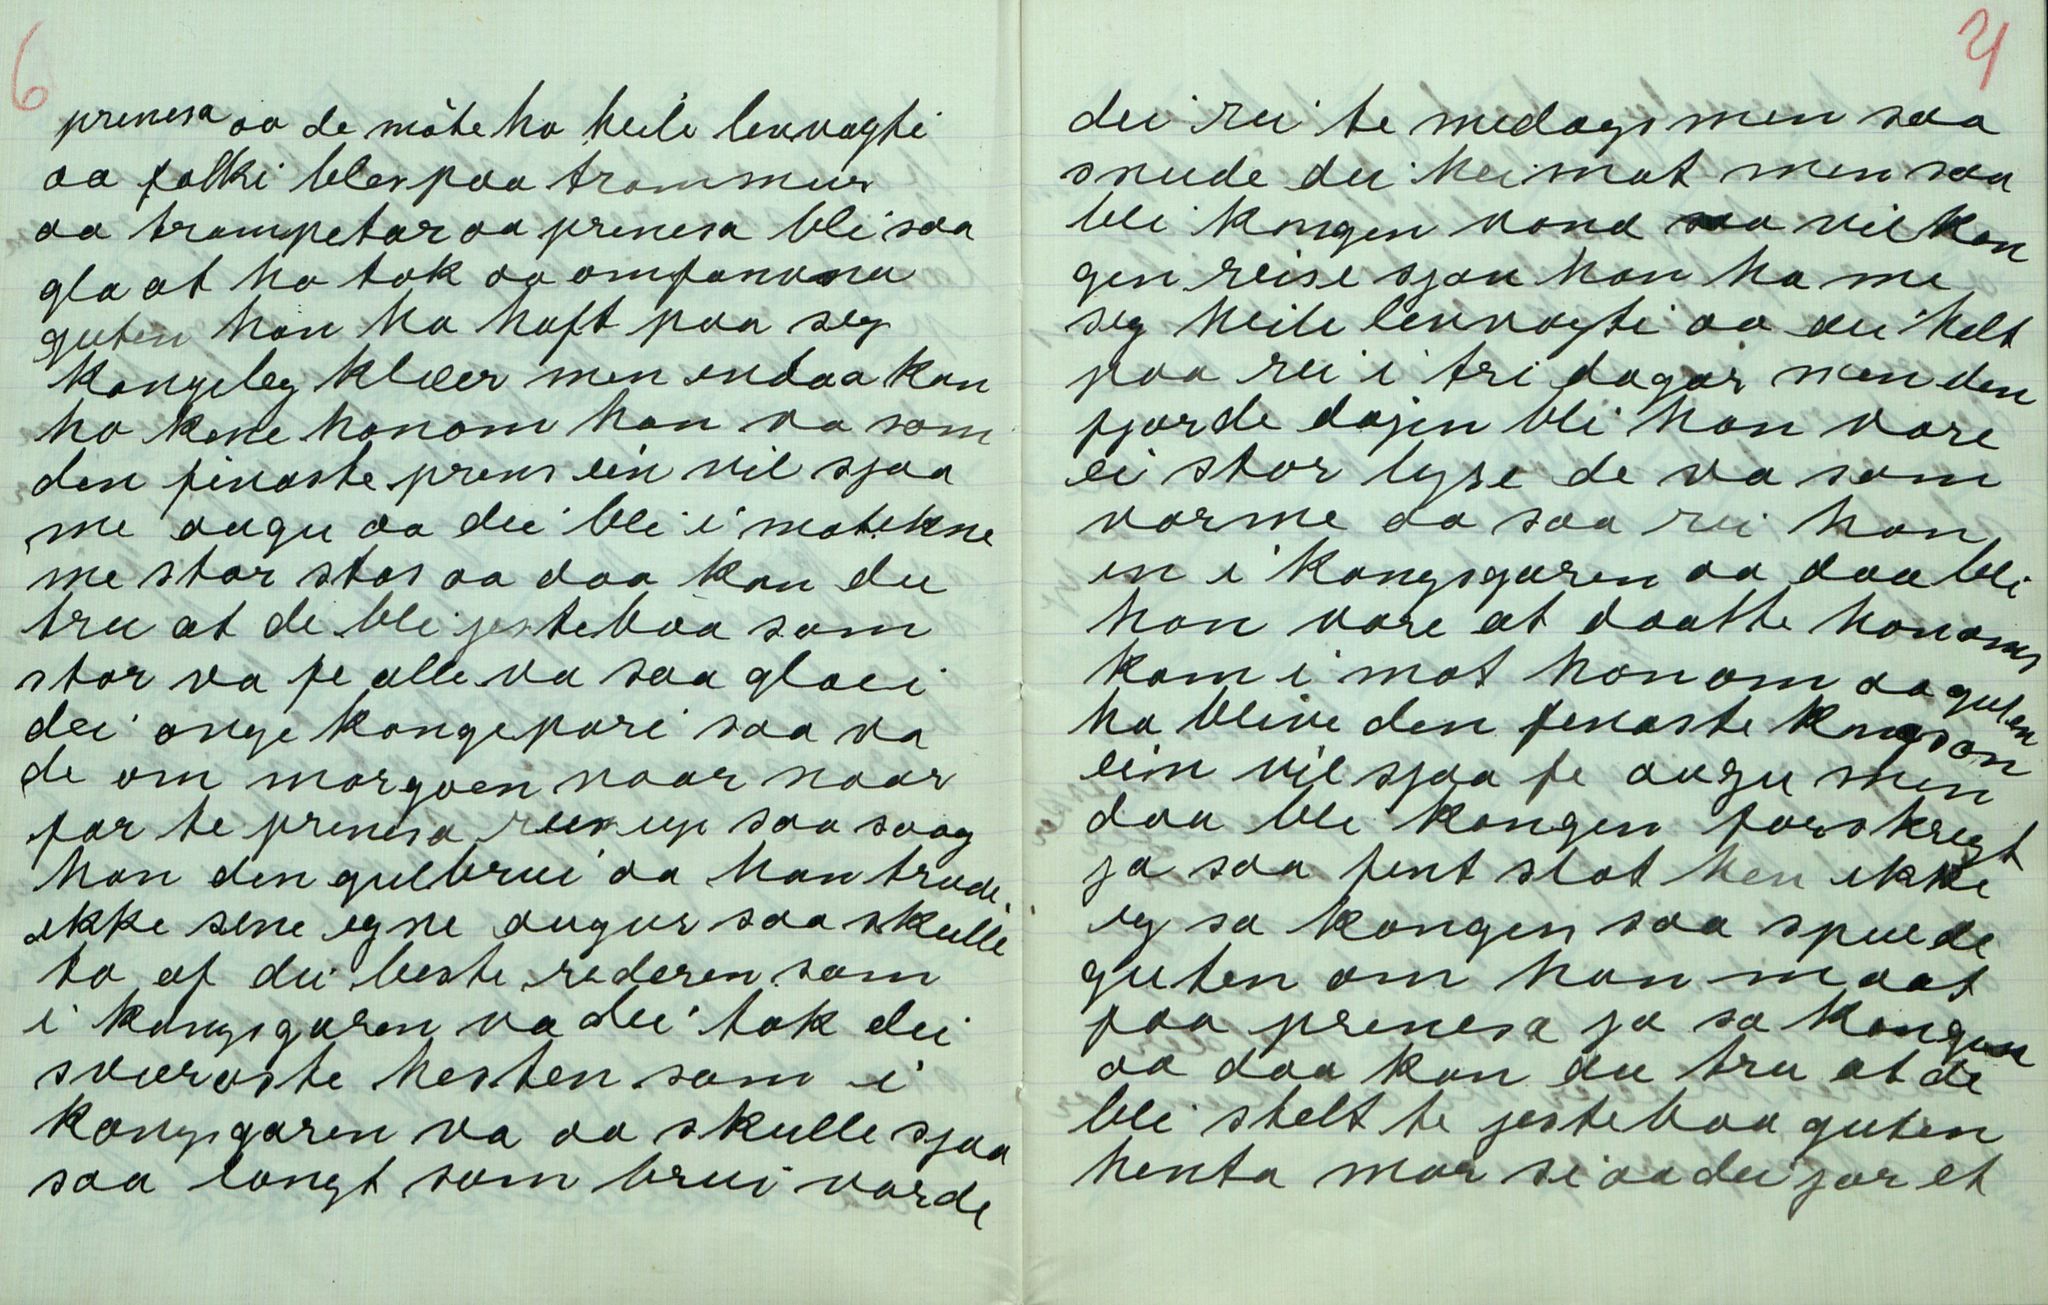 6
prenesa oa de möte ho heile levvagti
oa folki bles paa trommur
oa trompetar oa prenesa bli saa
gla at ho tok oa omfavna
guten han ha haft paa seg
kongeleg klæer men endaa kan
ho kene honom han va som
den finaste prens ein vil sjaa
me augu oa dei bli i motekne
me stor stas oa daa kan du
tru at de bli jestebaa som
stor va fe alle va saa glae i
dei onge kongepari saa va
de om morgoen naar naar
far te prenesa reis up saa saag
han den gulbrui oa han trude
ikke sine egne augur saa skulle
to af dei beste rederen som
i kongsgaren va dei tok dei
sværaste hesten som i
kongsgaren va oa skulle sjaa
saa langt som brui varde
7
dei rei te medags men saa
snude dei heimat men saa
bli kongen vond saa vil kon
gen reise sjøu han ha me
seg heile levvagti oa dei helt
paa rei i tri dagar men den
fjorde dajen bli han vare
ei stor lyse de va som
varme oa saa rei han
in i kongsgaren oa daa bli
han vare at daatte honoms
kom i mot honom oa guten
ha blive den fenaste kongson
ein vil sjaa fe augu men
daa bli kongen forskregt
ja saa fent slot hen ikke
eg sa kongen saa spurde
guten om han maat
faa prenesa ja sa kongen
oa daa kan du tru at de
bli stelt te jestebaa guten
henta mor si oa dei jor et